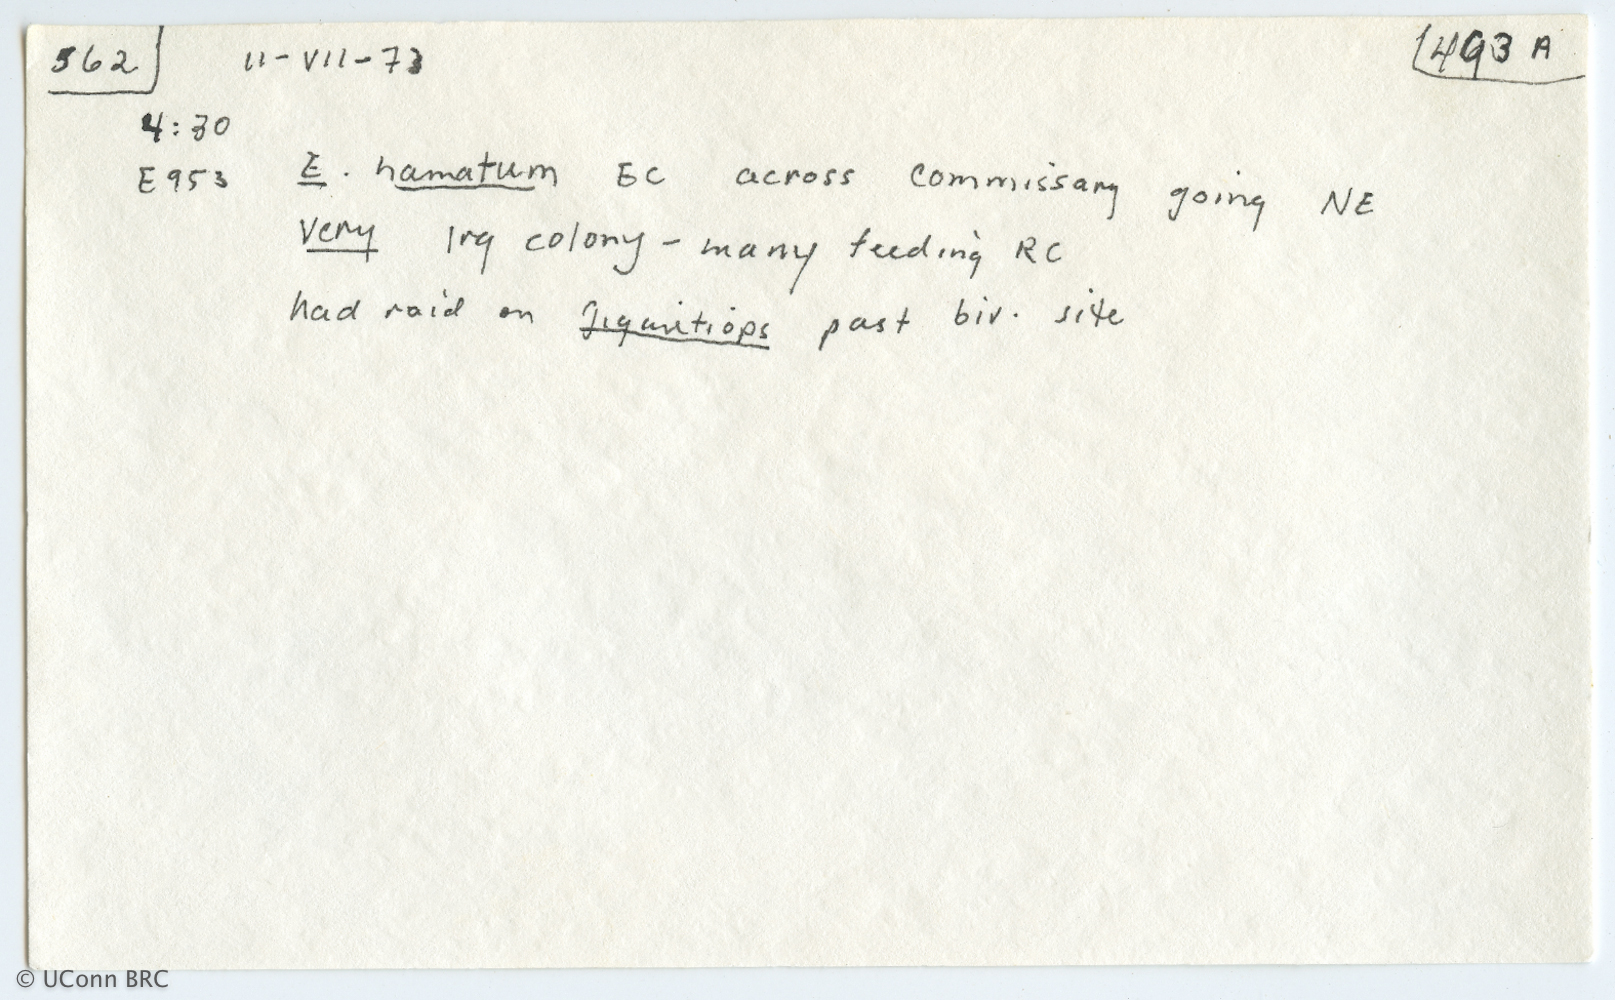 562 11-VII-73 493 A
4:30
E953 E. hamatum EC across commissary going NE
very lrg colony - many feeding RC
had raid on Gigantiops past biv. site
© UConn BRC